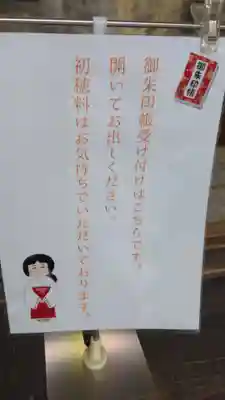 御朱印帳受け付けはこちらです。
開いてお出しください。
初穂料はお気持ちでいただいております。